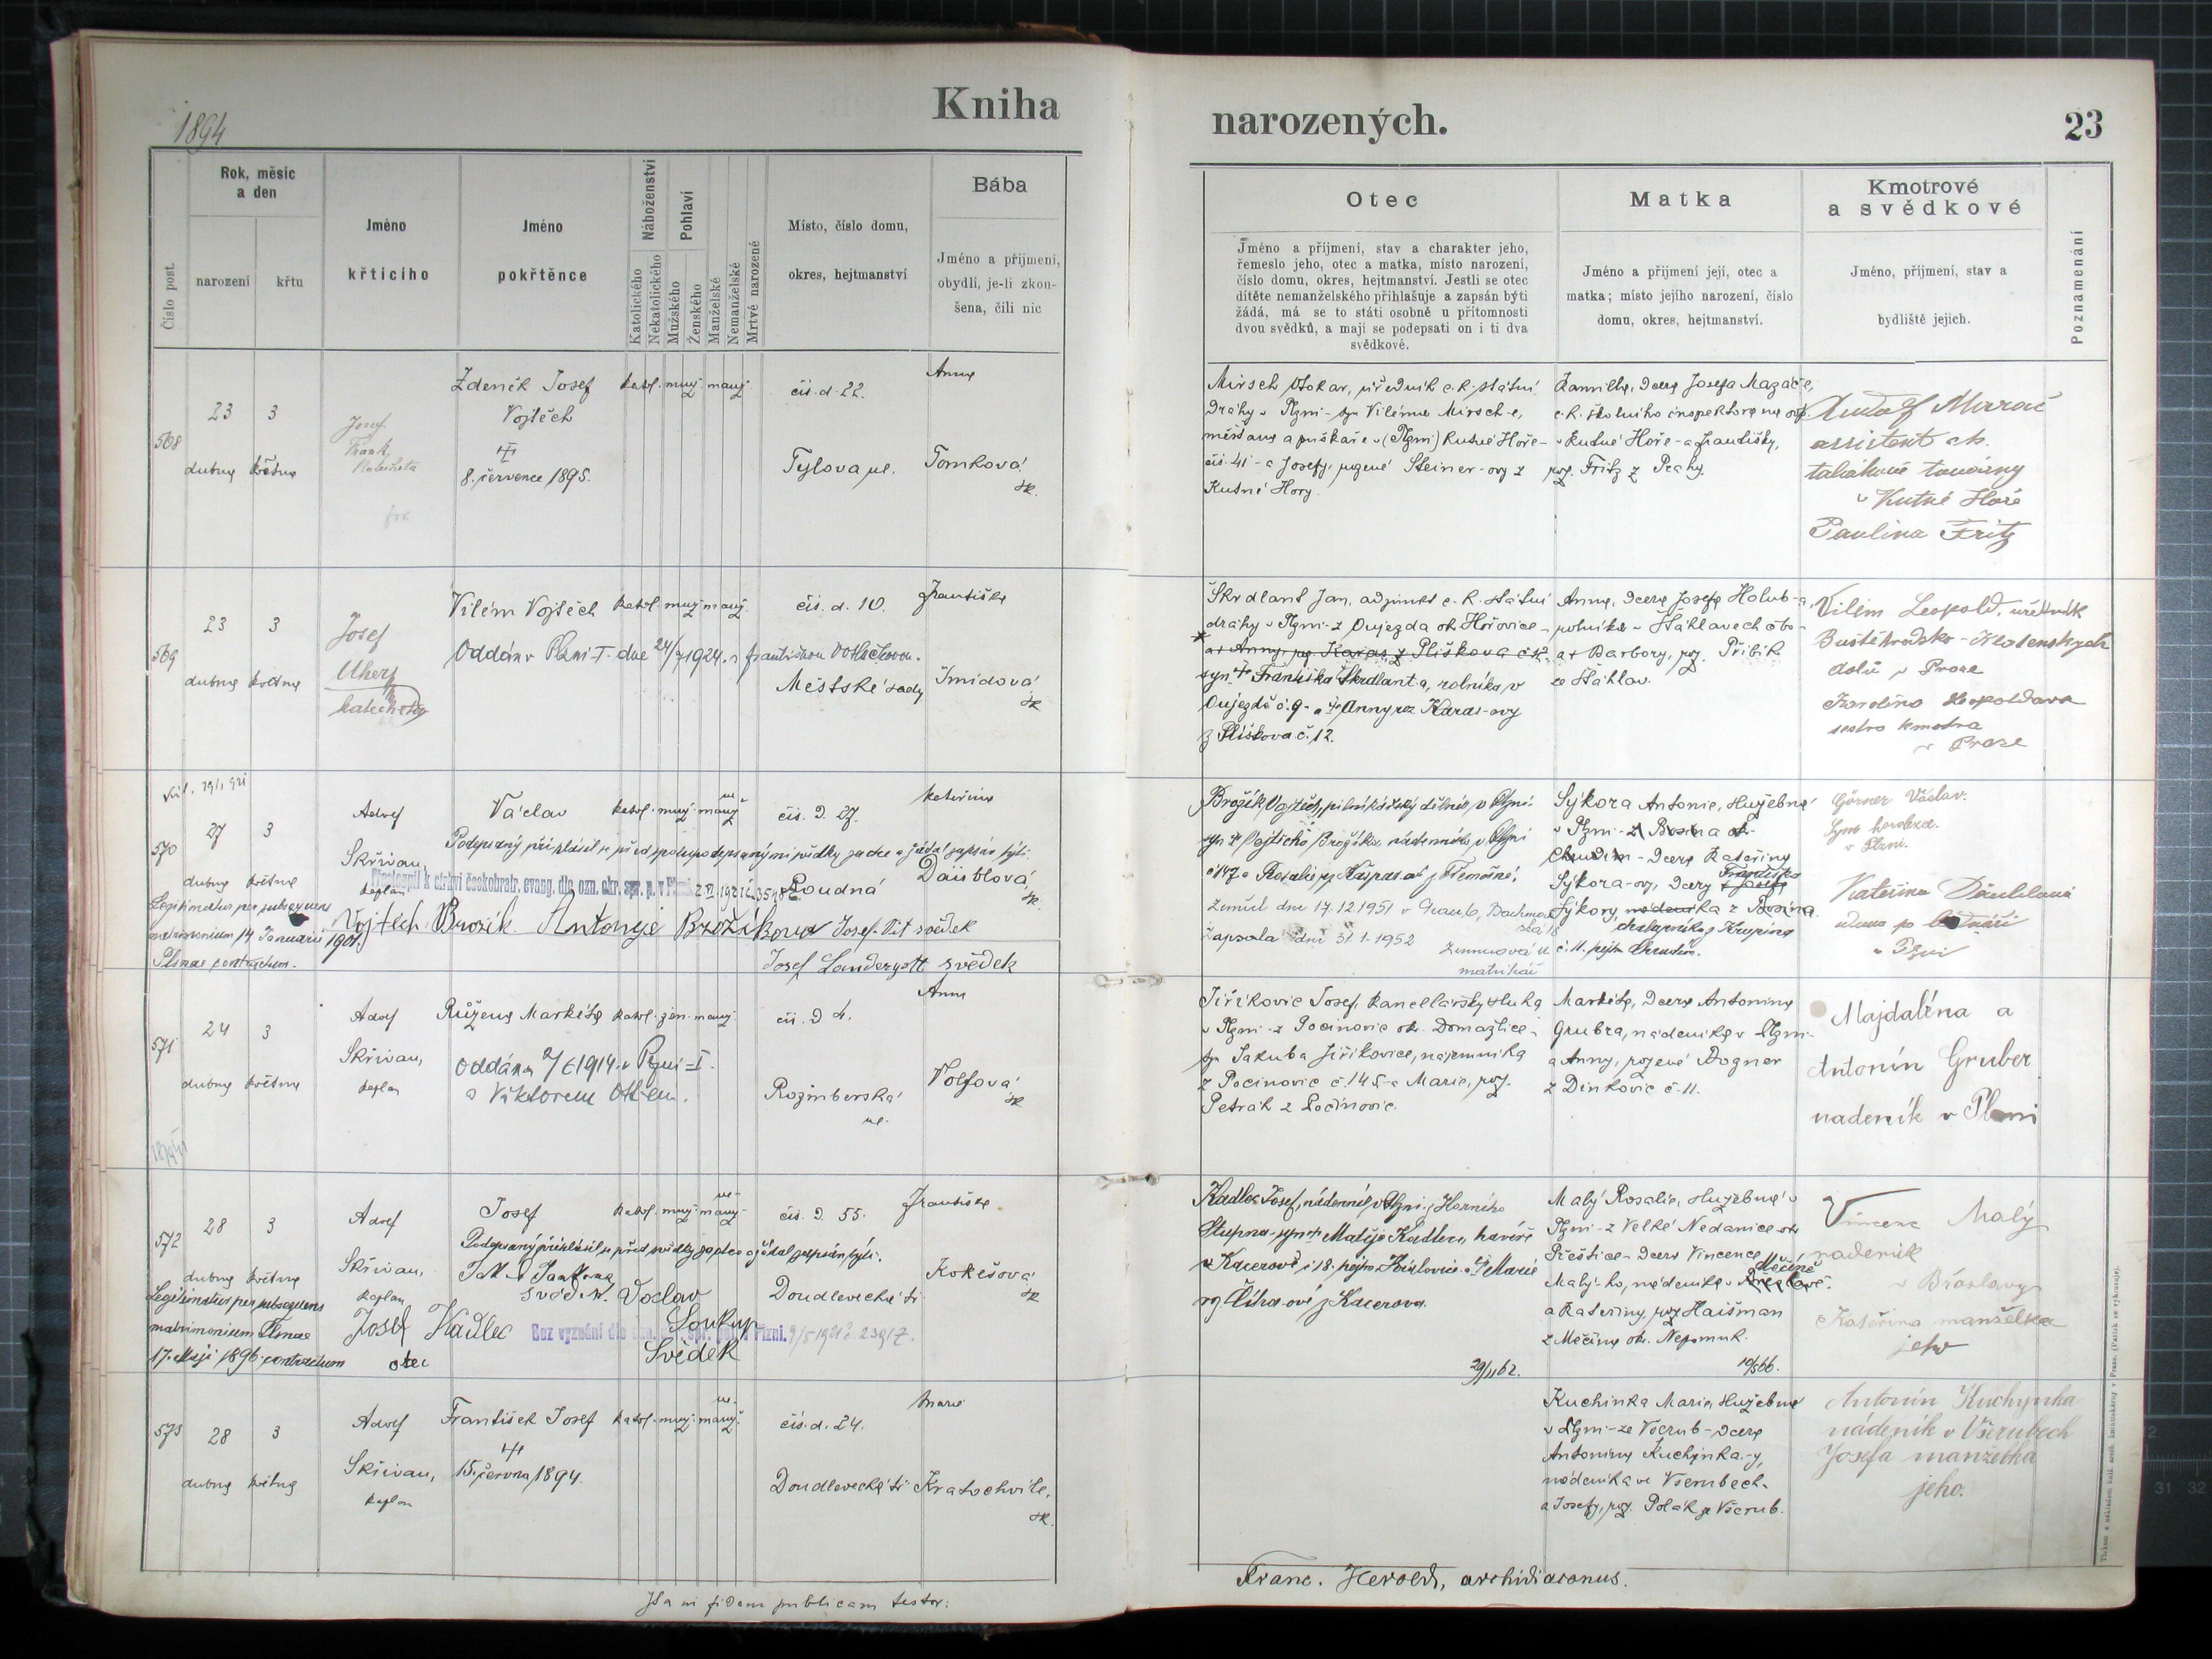 1894
Kniha
narozených.
23
Číslo post.
Rok, měsíc
a den
narození
křtu
Jméno
křtícího
Jméno
pokřtěnce
Náboženství
Katolického
Nekatolického
Pohlaví
Mužského
Ženského
Manželské
Nemanželské
Mrtvě narozené
Místo, číslo domu,
okres, hejtmanství
Bába
Jméno a příjmení,
obydlí, je-li zkou-
šena, čili nic
Otec
Jméno a příjmení, stav a charakter jeho,
řemeslo jeho, otec a matka, místo narození,
číslo domu, okres, hejtmanství. Jestli se otec
dítěte nemanželského přihlašuje a zapsán býti
žádá, má se to státi osobně u přítomnosti
dvou svědků, a mají se podepsati on i ti dva
svědkové.
Matka
Jméno a příjmení její, otec a
matka; místo jejího narození, číslo
domu, okres, hejtmanství.
Kmotrové
a svědkové
Jméno, příjmení, stav a
bydliště jejich.
Poznamenání
568
23
dubna
3
května
Josef
Frank,
Katecheta
Zdeněk Josef
Vojtěch
8. července 1895.
katol. muž. manž.
čís. d. 22.
Tylova ul.
Anna
Tomková
zk.
Mirsch Otokar, úředník c. k. státní
dráhy v Plzni - syn Viléma Mirsch-e,
měšťana a puškaře v (Plzni) Kutné Hoře -
čís. 41 - a Josefy, rozené Steiner-ovy z
Kutné Hory.
Kamilla, dcera Josefa Mazáče,
c. k. školního inspektora na odp.
v Kutné Hoře - a Františky,
roz. Fritz z Prahy.
assistent ck.
tabákové továrny
v Kutné Hoře
Paulina Fritz
569
23
dubna
3
května
Josef
Uherz
katecheta
Vilém Vojtěch
katol. muž. manž.
Oddán v Plzni-I. dne 24/7 1924. s Františkou
čís. d. 10.
Městské sady
Františka
Šmídová
zk
Škrdlant Jan, adjunkt c. k. státní
dráhy v Plzni - z Oujezda ok. Hořovice -
a + Anny, roz. Karas z Plískova č. 12.
syn + Františka Škrdlanta, rolníka v
Oujezdě č. 9 - a + Anny roz. Karas-ovy
z Plískova č. 12.
Anna, dcera Josefa Holub-a,
rolníka v Šťáhlavech
a + Barbory, roz. Přibík
ze Šťáhlav.
Vilém Leopold, úředník
Buštěhradsko - Kladenských
dolů v Praze
Karolina Leopoldova
sestra kmotra
v Praze
570
27
dubna
3
května
Adolf
Skřivan,
kaplan
Václav
katol. muž. manž.
ne
Podepsaný přihlásil se před spolupodepsanými svědky za otce a žádal zapsán býti.
Přistoupil k církvi českobratr. evang. dle ozn. okr. spr. p. v Plzni
Legitimatus per subsequens
matrimonium 14 Januarii 1901
Plsnae contractum.
Vojtěch Brožík Antonie Brožíkova Josef Pit svědek
Josef Landergott svědek
čís. d. 27.
Poudná
Kateřina
Daiblová
zk
Brožík Vojtěch, pilníkářský dělník v Plzni.
syn + Vojtěcha Brožíka, nádenníka v Plzni
č 147 a Rosalie roz. Kašpar-ové z Třemošné.
Zemřel dne 17.12.1951
Zapsala dne 31.1.1952
matrikář
Sýkora Antonie, služebná
v Plzni - z Bosina ok.
Chrudim - dcera Kateřiny
Sýkora-ovy, dcery + Josefa
Františka
Sýkory, nádeníka z Bosina.
chalupníka z Krupína
č. 11. hejtm. Chrudim.
Görner Václav.
v Plzni.
Kateřina Däublová
vdova po
v Plzni
571
24
dubna
3
května
Adolf
Skřivan,
kaplan
Růžena Markéta
katol. žen. manž.
Oddána 2/6 1914 v Plzni-I.
s Viktorem Ottem.
čís. d. 4.
Rozmberská
ul.
Anna
Volfová
zk
Jiříkovic Josef, kancellářský sluha
v Plzni - z Pocinovic ok. Domažlice -
syn Jakuba Jiříkovice, nájemníka
z Pocinovic č. 145 - a Marie, roz.
Petrák z Pocinovic.
Markéta, dcera Antonína
Grubra, nádeníka v Plzni -
a Anny, rozené Wagner
z Dinkovic č. 11.
Majdaléna a
Antonín Gruber
nadeník v Plzni
572
28
dubna
3
května
Adolf
Skřivan,
kaplan
Josef
katol. muž. manž.
ne-
Podepsaný přihlásil se před svědky za otce a žádal zapsán býti.
svědek. Václav
Soukup
Svědek
Legitimatus per subsequens
matrimonium Plsnae
17. Maji 1896 contractum
Josef Kadlec
otec
Bez vyznání dle
čís. d. 55.
Doudlevecká tř.
Františka
Kokešová
zk
Kadlec Josef, nádeník v Plzni z Horního
Stupna - syn + Matěje Kadlece, havíře
v Kacerově č 18. hejtm. Kralovice a + Marie
roz. Číha-ové z Kacerova.
29/11 62.
Malý Rosalie, služebná v
Plzni - z Velké Nedanice ok.
Přeštice - dcera Vincence
Malý-ho, nádeníka v
Měčíně
a Kateřiny, roz. Haišman
z Měčína ok. Nepomuk.
10/5 66.
Vincenc Malý
nadeník
v Břaslavy
Kateřina manželka
jeho
573
28
dubna
3
května
Adolf
Skřivan,
kaplan
František Josef
15. června 1894.
katol. muž. manž.
ne-
čís. d. 24.
Doudlevecká tř.
Marie
Kratochvíle,
zk.
Kuchinka Marie, služebná
v Plzni - ze Všerub - dcera
Antonína Kuchinka-y,
nádeníka ve Všerubech -
a Josefy, roz. Polák ze Všerub.
Antonín Kuchynka
nádeník v Všerubech
Josefa manželka
jeho.
Ita in fidem publicam testor:
Franc. Herold, archidiaconus.